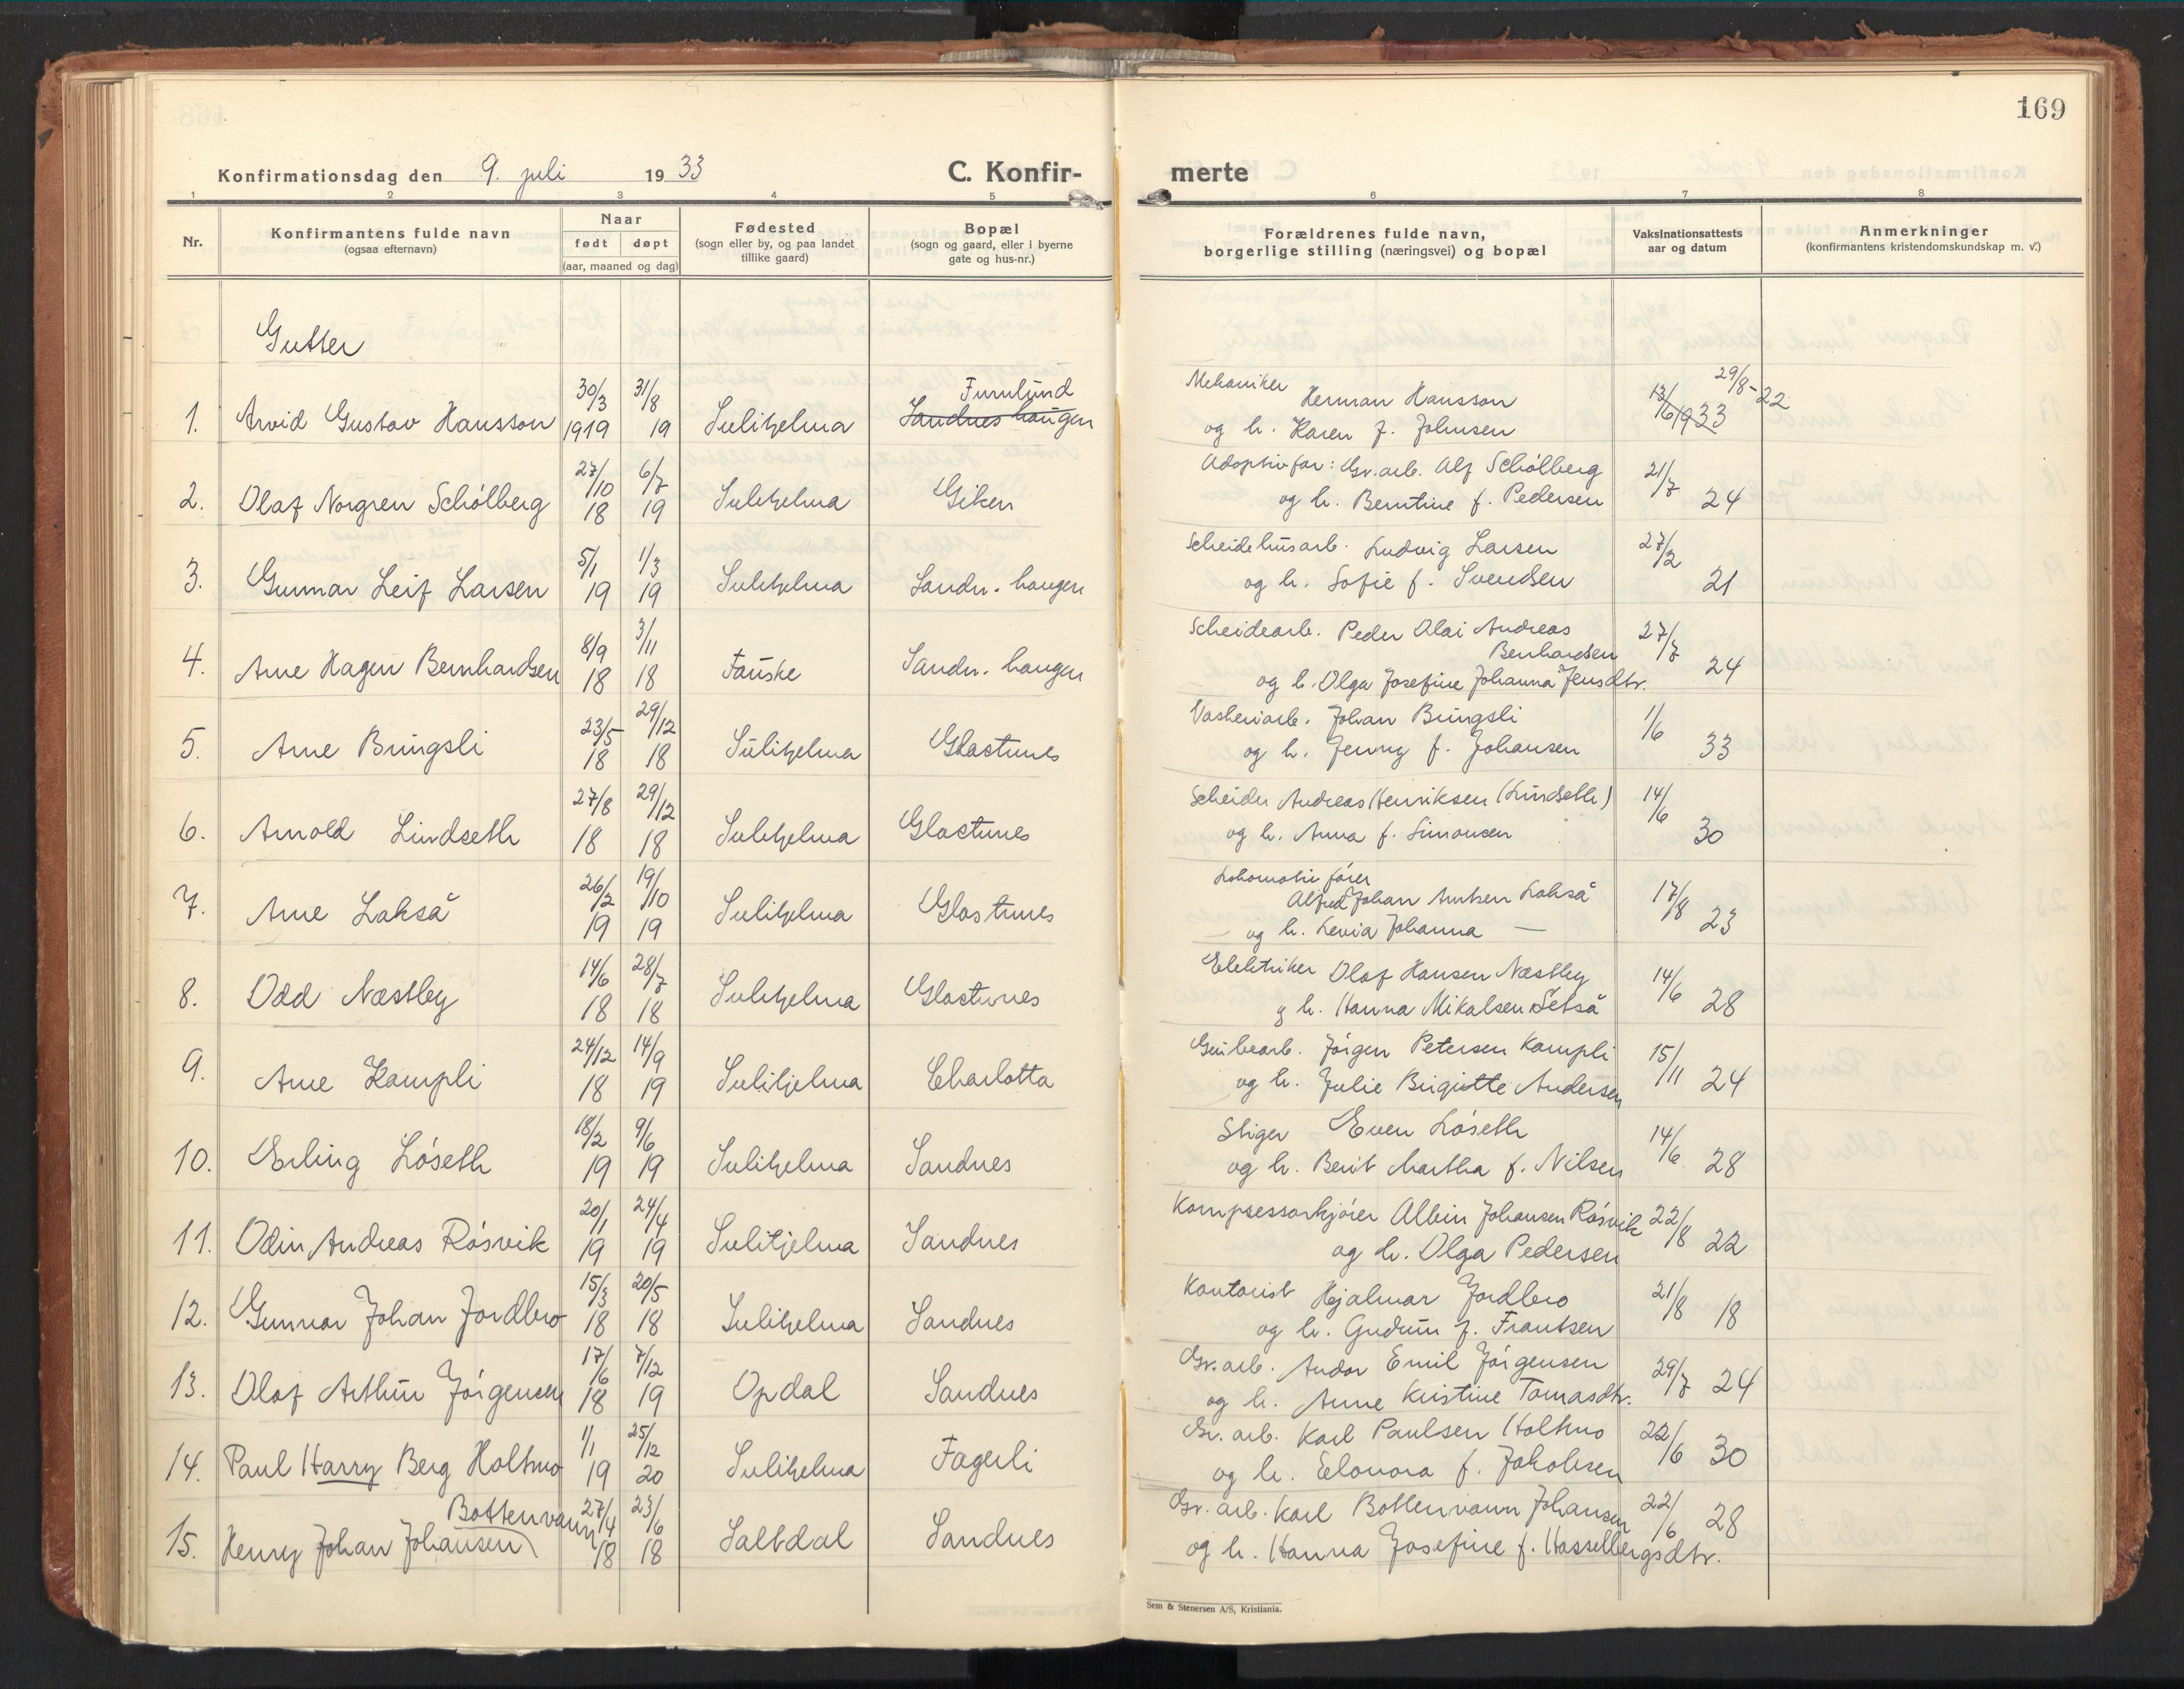 169
Konfirmationsdag den 9. juli 1933
C. Konfir-
merte
1 2 3 4 5 6 7 8
Nr.
Konfirmantens fulde navn
(ogsaa efternavn)
Naar
født døpt
(aar, maaned og dag)
Fødested
(sogn eller by, og paa landet
tillike gaard)
Bopæl
(sogn og gaard, eller i byerne
gate og hus-nr.)
Forældrenes fulde navn,
borgerlige stilling (næringsvei) og bopæl
Vaksinationsattests
aar og datum
Anmerkninger
(konfirmantens kristendomskundskap m. v.)
Gutter
30/3 31/8 Furulund Mekaniker Herman Hansson 13/6 29/8-22
1. Arvid Gustav Hansson 1919 19 Sulitjelma Sandneshaugen og h. Karen f. Johnsen 1933
27/10 6/7 Adoptivfar: Gr.arb. Alf Schólberg 21/7
2. Olaf Norgren Schólberg 18 19 Sulitjelma Giken og h. Berntine f. Pedersen 24
5/1 1/3 Scheidehusarb. Ludvig Larsen 27/2
3. Gunnar Leif Larsen 19 19 Sulitjelma Sandn. haugen og h. Sofie f. Svendsen 21
8/9 3/11 Scheidearb. Peder Olai Andreas Bernhardsen 27/7
4. Arne Hagen Bernhardsen 18 18 Fauske Sandn. haugen og h. Olga Josefine Johanna Jensdtr. 24
23/5 29/12 Vaskeriarb. Johan Bringsli 1/6
5. Arne Bringsli 18 18 Sulitjelma Glastunes og h. Jenny f. Johansen 33
27/8 29/12 Scheider Andreas Henriksen (Lindseth) 14/6
6. Arnold Lindseth 18 18 Sulitjelma Glastunes og h. Anna f. Simonsen 30
26/2 19/10 Lokomotivfører Alfred Johan Antsen Lakså 17/8
7. Arne Lakså 19 19 Sulitjelma Glastunes og h. Levia Johanna — 23
14/6 28/7 Elektriker Olaf Hansen Næstby 14/6
8. Odd Næstby 18 18 Sulitjelma Glastunes og h. Hanna Mikalsen Setså 28
24/12 14/9 Grubearb. Jørgen Petersen Kampli 15/11
9. Arne Kampli 18 19 Sulitjelma Charlotta og h. Julie Birgitte Andersen 24
18/2 9/6 Stiger Even Lóseth 14/6
10. Erling Lóseth 19 19 Sulitjelma Sandnes og h. Berit Martha f. Nilsen 28
20/1 24/4 Kompressorkjører Albin Johansen Røsvik 22/8
11. Odin Andreas Røsvik 19 19 Sulitjelma Sandnes og h. Olga Pedersen 22
15/3 20/5 Kontorist Hjalmar Jordbro 21/8
12. Gunnar Johan Jordbro 18 18 Sulitjelma Sandnes og h. Gudrun f. Frantsen 18
17/6 7/12 Gr.arb. Andor Emil Jørgensen 29/7
13. Olaf Arthur Jørgensen 18 19 Opdal Sandnes og h. Anne Kristine Tomasdtr. 24
1/1 25/12 Gr. arb. Karl Paulsen Holtmo 22/6
14. Paul Harry Berg Holtmo 19 20 Sulitjelma Fagerli og h. Eleonora f. Jakobsen 30
Bottenvann 27/4 23/6 Gr. arb. Karl Bottenvann Johansen 22/6
15. Henry Johan Johansen 18 18 Saltdal Sandnes og h. Hanna Josefine f. Hasselbergsdtr. 28
Sem & Stenersen A/S, Kristiania.